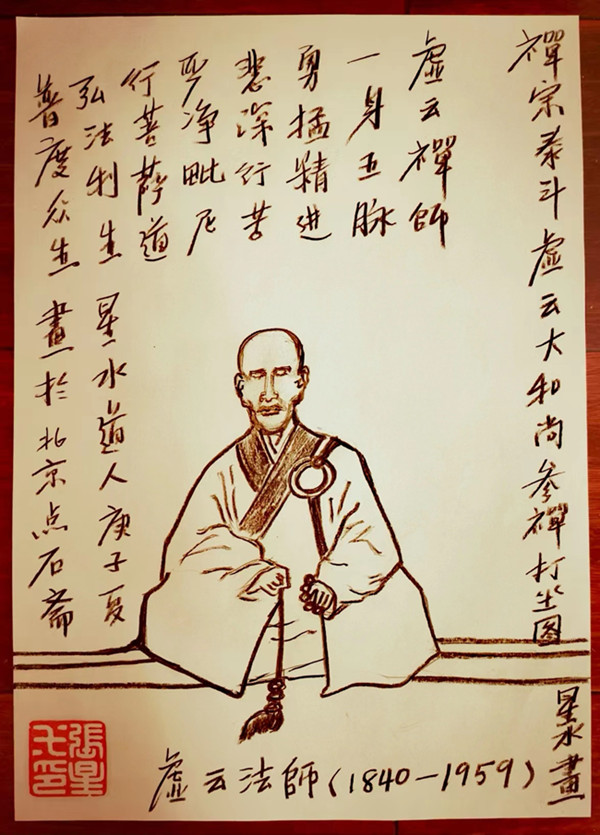 禪宗泰斗虛云大和尚參禪打坐图
星水畫
虛云禪師
一身五脉
勇猛精进
悲深行苦
聖净毗尼
行菩薩道
弘法利生
普度众生
星水道人庚子夏
畫於北京点石斋
虛云法師(1840-1959)